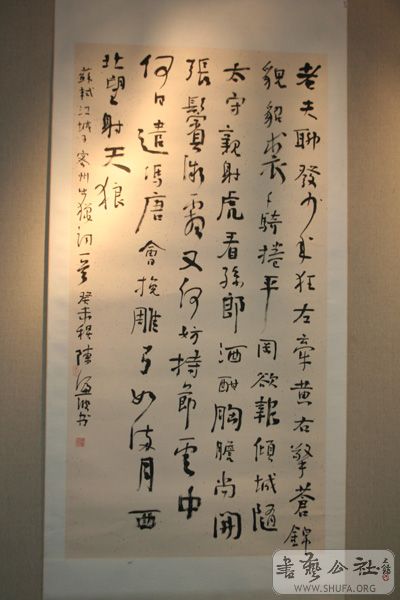 老夫聊發少年狂左牽黃右擎蒼錦
帽貂裘千騎捲平岡欲報傾城隨
太守親射虎看孫郎酒酣胸膽尚開
張鬢微霜又何妨持節雲中
何日遣馮唐會挽雕弓如滿月西
北望射天狼
蘇軾江城子密州出獵詞一首 癸未秋 陳
書藝公社
WWW.SHUFA.ORG